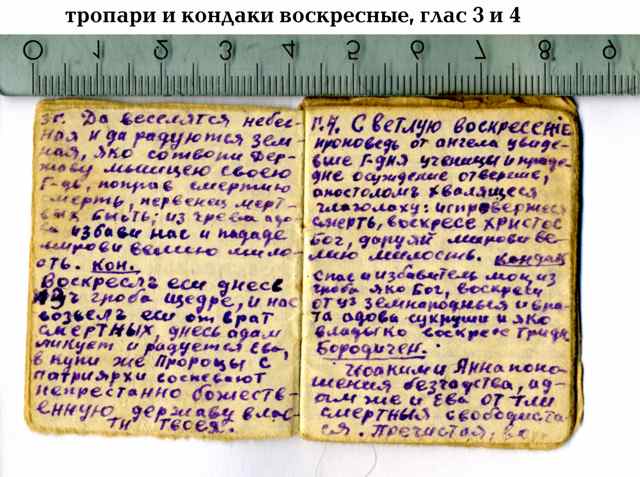 тропари и кондаки воскресные, глас 3 и 4
0 1 2 3 4 5 6 7 8 9
3г. Да веселятся небес-
ная и да радуются зем-
ная, яко сотвори дер-
жаву мышцею своею
Г-дь, поправ смертию
смерть, первенец мерт-
вых бысть; из чрева адо-
ва избави нас и пададе
мирови велию мило-
сть. Кон.
Воскреслъ еси днесь
из гроба щедре, и нас
возвелъ еси от врат
смертных, днесь адам
ликует и радуется Ева,
в купи же Пророцы с
патриярхи соспевают
непрестанно божеств-
енную державу влас-
ти твоея.
Г.4. Светлую воскресение
проповедь от ангела увиде-
вше Г-дня ученицы и праде-
дне осуждение отвергше,
апостоломъ хвалящеся
глаголаху: испровержеся
смерть, воскресе Христос
Бог, даруяй мирови ве-
лию милость. Кондак
Спас и избавитель мои, из
гроба яко Бог, воскреси
от уз земнародныя и вра-
та адова сукруши и яко
владыко воскресе Тридн
Бородичен.
Иоаким и Анна поно-
шения безчадства, ад-
ам же и Ева от тли
смертныя свободиста-
ся. Пречистая,